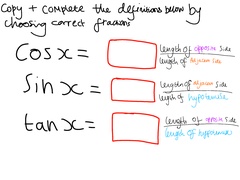 Copy + complete the definitions below by
choosing correct fractions
Cosx = length of opposite side
length of adjacent side
Sinx = length of adjacent side
length of hypotenuse
tanx = length of opposite side
length of hypotenuse